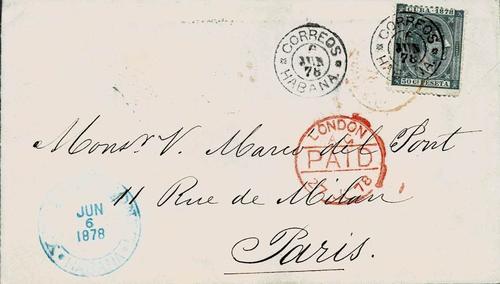 CORREOS
6
JUN
78
HABANA
CUBA 1878
JUN
78
50 CS PESETA
LONDON
PAID
78
Monsr V. Marco del Pont
11 Rue de Milan
Paris.
JUN
6
1878
HABANA